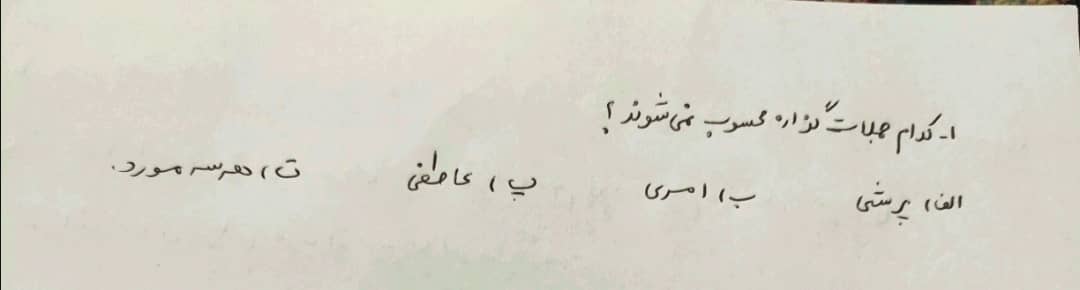 ۱- کدام جملات گزاره محسوب نمی‌شوند؟
الف) پرسشی ب) امری پ) عاطفی ت) هر سه مورد.